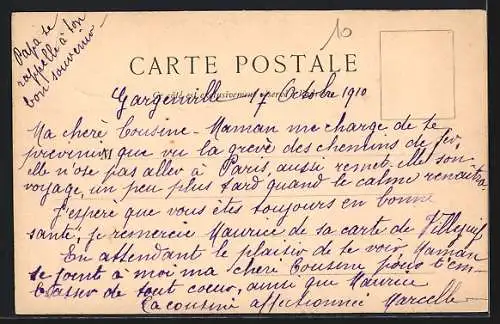 Papa se
rappelle à ton
bon souvenir
10
CARTE POSTALE
Ce côté est exclusivement réservé
Gargenville 17 Octobre 1910
Ma chère Cousine - Maman me charge de te
prévenir que vu la grève des chemins de fer,
elle n'ose pas aller à Paris, aussi remet-elle son
voyage, un peu plus tard quand le calme renaîtra.
J'espère que vous êtes toujours en bonne
santé, je remercie Maurice de sa carte de Villejuif
En attendant le plaisir de te voir, Maman
se joint à moi ma chère Cousine pour t'em-
brasser de tout coeur, ainsi que Maurice
Ta cousine affectionnée Marcelle